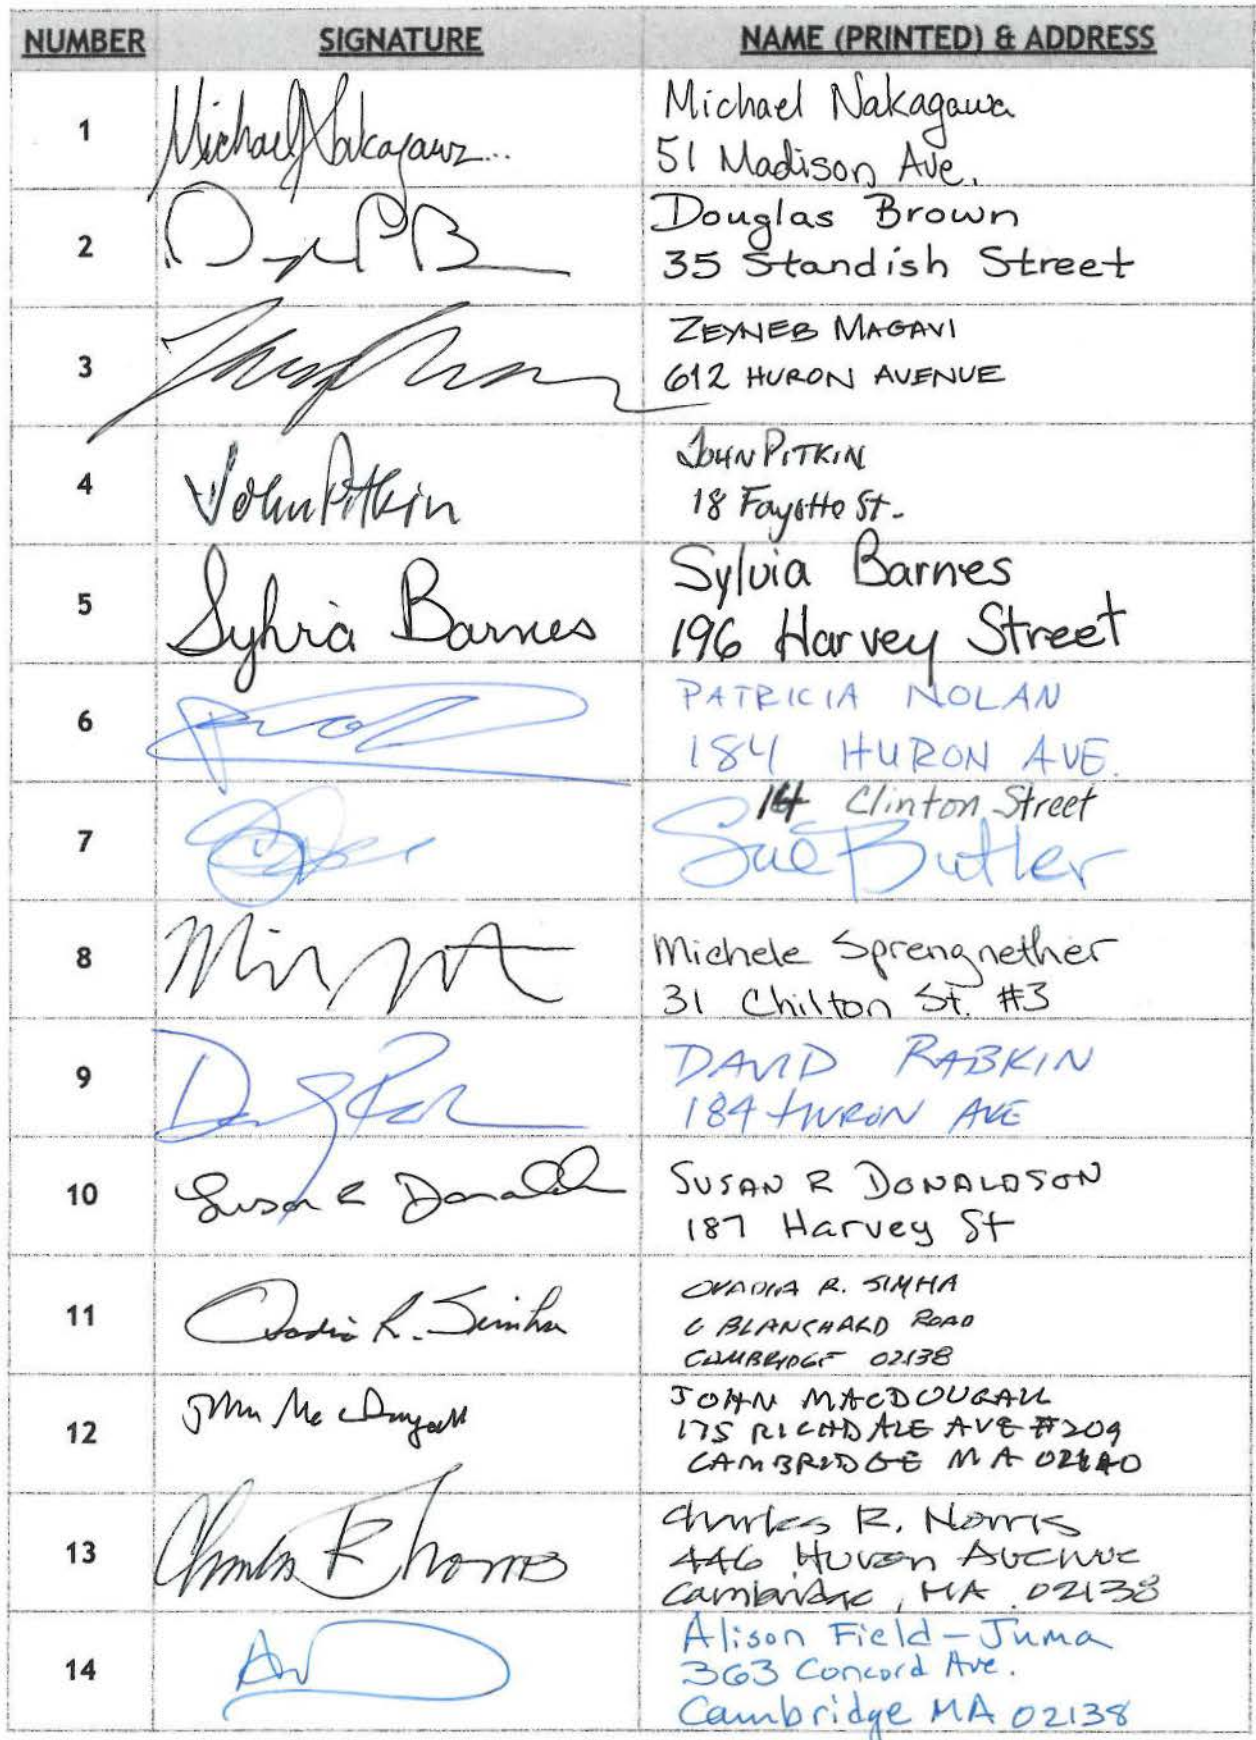 NUMBER SIGNATURE NAME (PRINTED) & ADDRESS
1 Michael Nakagawa Michael Nakagawa
51 Madison Ave.
2 Douglas Brown
35 Standish Street
3 ZEYNEB MAGAVI
612 HURON AVENUE
4 John Pitkin JOHN PITKIN
18 Fayette St.
5 Sylvia Barnes Sylvia Barnes
196 Harvey Street
6 PATRICIA NOLAN
184 HURON AVE.
7 14 Clinton Street
Sue Butler
8 Michele Sprengnether
31 Chilton St. #3
9 DAVID RABKIN
184 HURON AVE
10 Susan R Donaldson SUSAN R DONALDSON
187 Harvey St
11 Ovadia R. Simha OVADIA R. SIMHA
BLANCHARD ROAD
CAMBRIDGE 02138
12 John MacDougall JOHN MACDOUGALL
175 RICHDALE AVE #209
CAMBRIDGE MA 02140
13 Charles R. Norris Charles R. Norris
446 Huron Avenue
Cambridge, MA 02138
14 Alison Field-Juma
363 Concord Ave.
Cambridge MA 02138